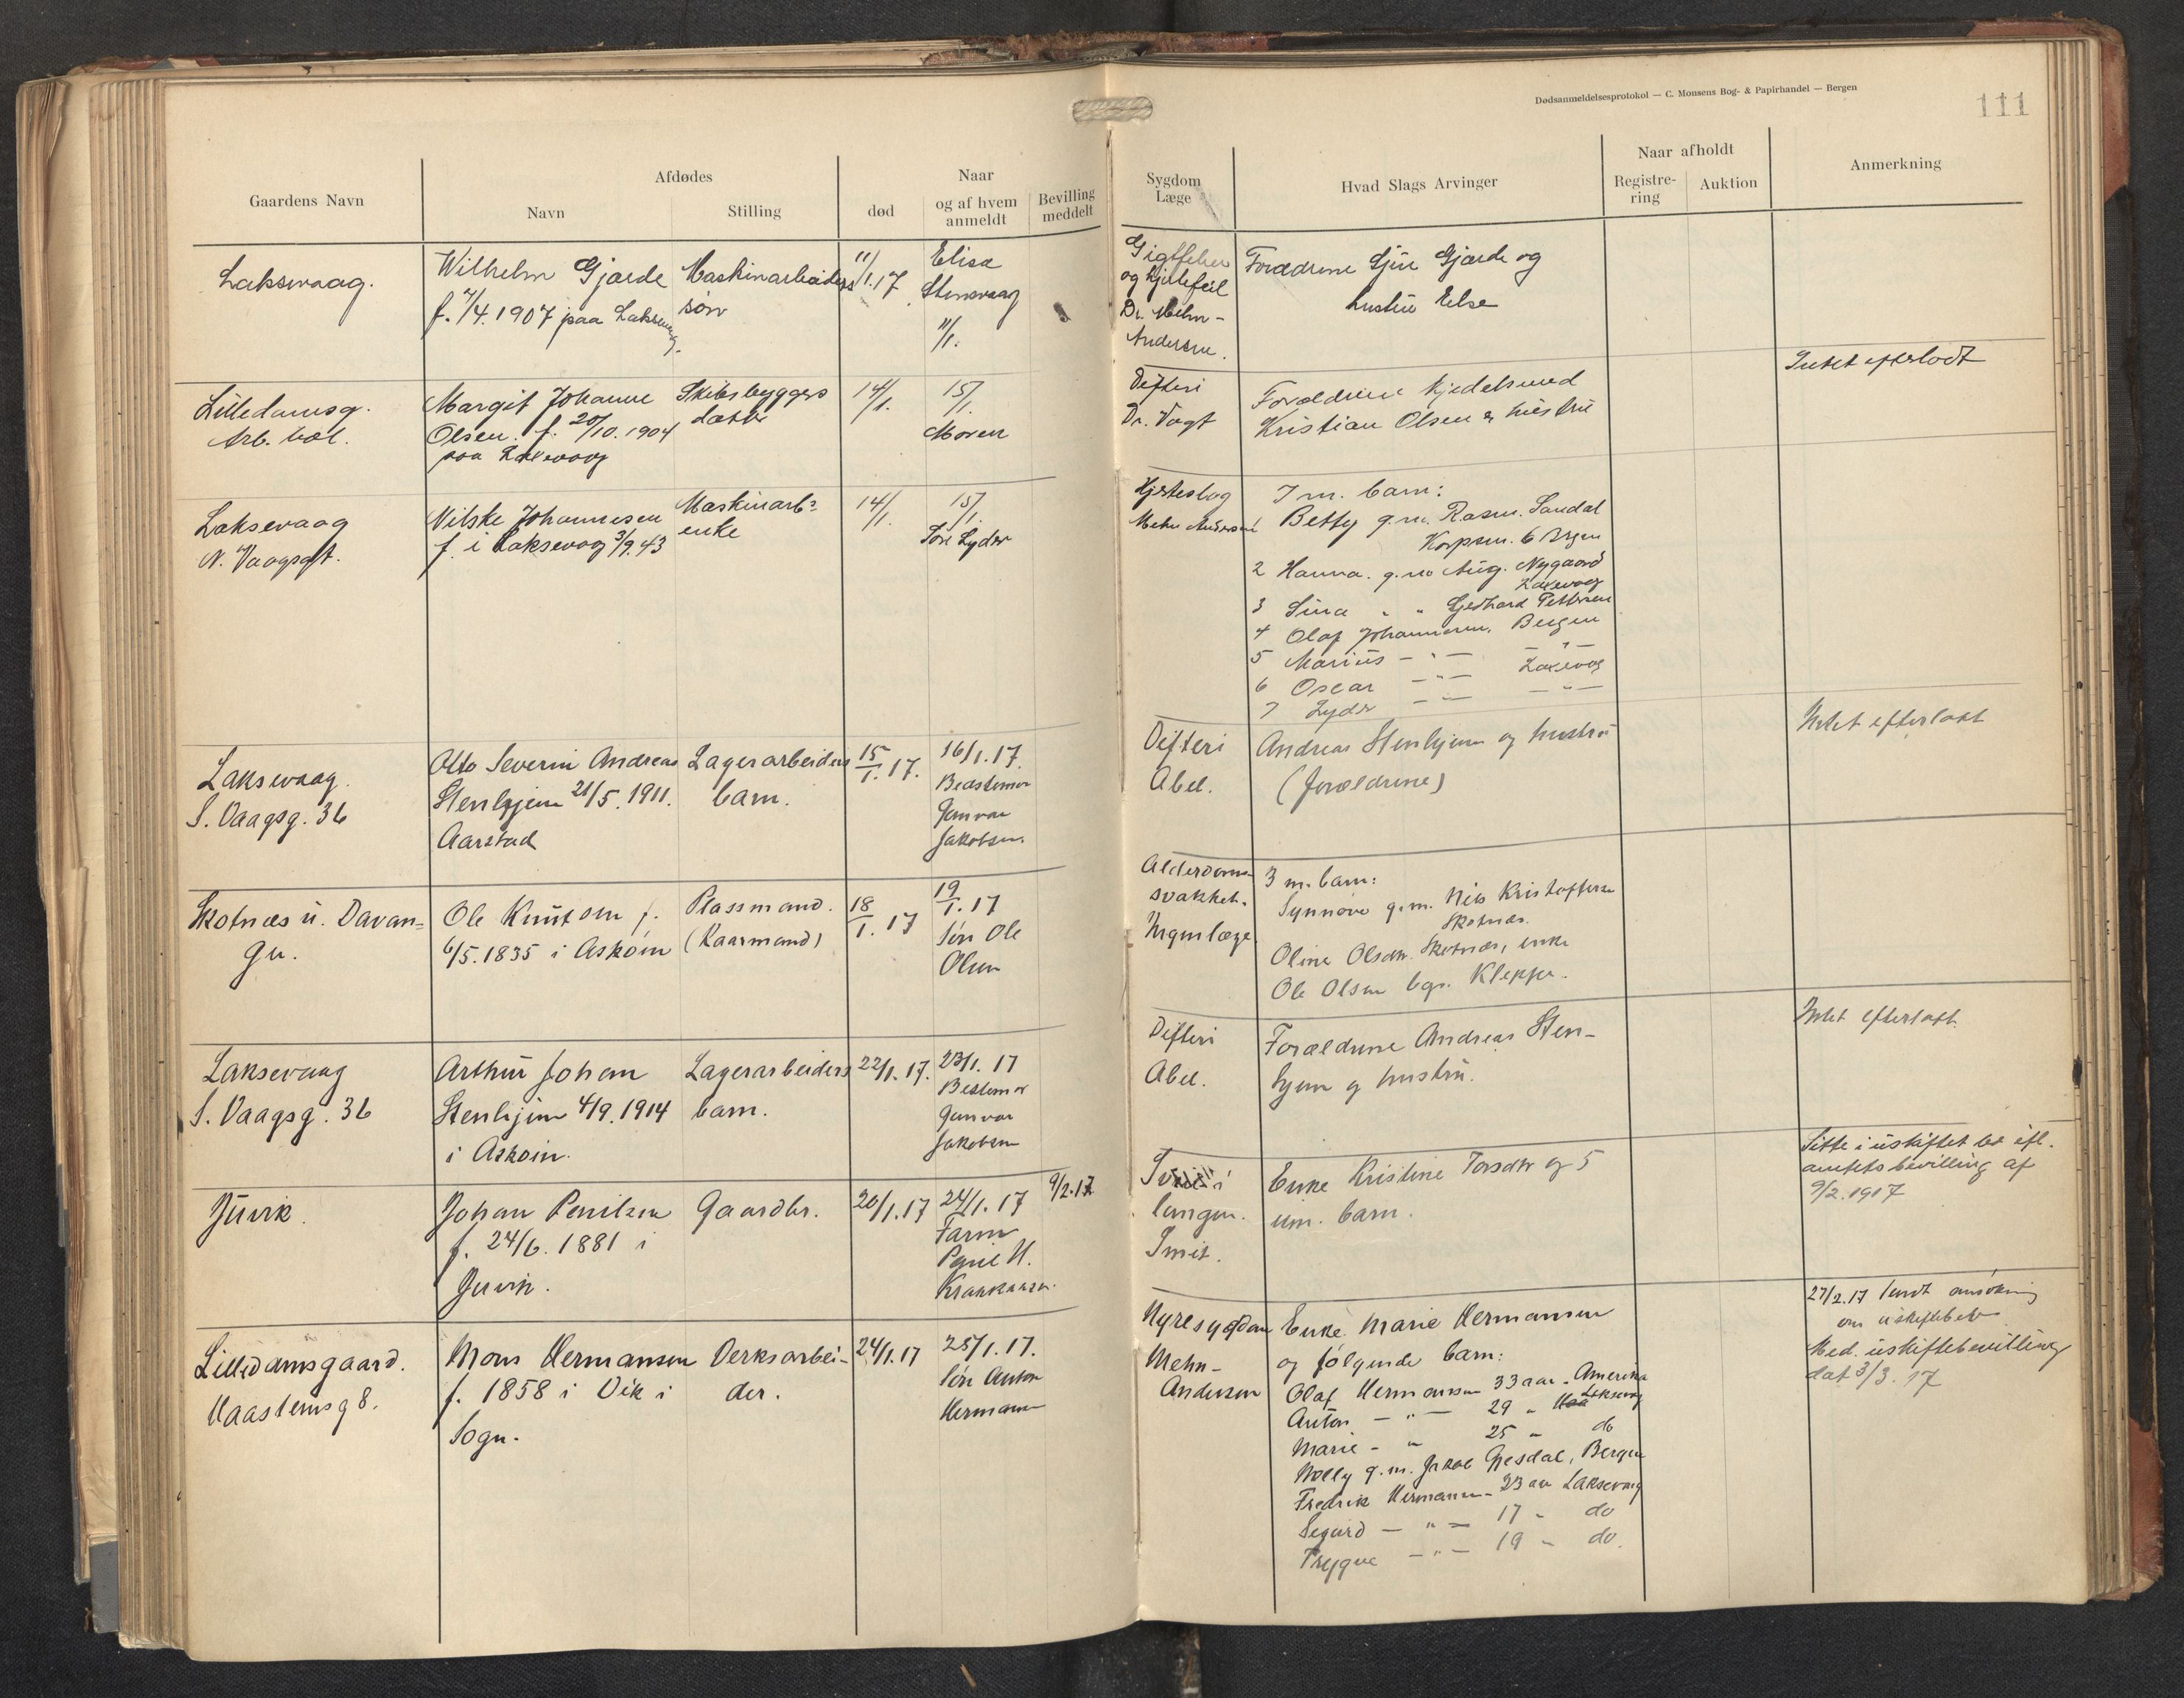 Dødsanmeldelsesprotokol — C. Monsens Bog- & Papirhandel — Bergen
111
Gaardens Navn
Afdødes
Navn
Stilling
død
Naar
og af hvem
anmeldt
Bevilling
meddelt
Sygdom
Læge
Hvad Slags Arvinger
Naar afholdt
Registre-
ring
Auktion
Anmerkning
Laksevaag.
Wilhelm Gjærde
f. 7/4. 1907 paa Laksevaag.
Maskinarbeiders
søn
11/1.17
Elise
Stensvaag
11/1.
Gigtfeber
og Hjertefeil
Dr. Mehn-
Andersen.
Forældrene Gjærde og
hustru Else
Lilledamsg.
Arb. bol.
Margit Johanne
Olsen. f. 20/10. 1904
paa Laksevaag
Skibsbyggers
datter
14/1.
15/1.
Moren
Difteri
Dr. Vogt
Forældrene Kjedelsmed
Kristian Olsen & hustru
Intet efterladt
Laksevaag
N. Vaagsgt.
Johannesen
f. i Laksevaag 3/9.43
Maskinarb.
enke
14/1.
15/1.
Lyder
Hjerteslag
Mehn Andersen
7 m. barn:
Betty g.m. Rasm. Sandal
Korpsm. Bergen
2 Hanna. g.m Aug. Nygaard
Laksevaag
3 Sina " " Gerhard Pettersen
4 Olaf Johannesen, Bergen
5 Marius - " - - " -
6 Oscar - " - Laksevaag
7 Lyder - " - - " -
Laksevaag.
S. Vaagsg. 36
Otto Severin Andreas
Stenhjem 21/5. 1911.
Aarstad
Lagerarbeiders
barn.
15/1. 17.
16/1. 17.
Bedstemor
Gunvor
Jakobsen.
Difteri
Abel.
Andreas Stenhjem og hustru
(forældrene)
Intet efterladt
Skotnæs u. Davan=
ger.
Ole Knutsen f.
6/5. 1835 i Askøen
Plassmand.
(Kaarmand)
18/1. 17
19/1. 17
Søn Ole
Olsen
Alderdoms-
svakhet.
Ingen læge.
3 m. barn:
Synnøve g.m. Nils Kristoffersen
Skotnæs.
Oline Olsdtr. Skotnæs, enke
Ole Olsen bgr. Kleppe.
Laksevaag
S. Vaagsg. 36
Arthur Johan
Stenhjem 4/9. 1914
i Askøen.
Lagerarbeiders
barn.
22/1. 17.
23/1. 17
Bestemor
Gunvor
Jakobsen
Difteri
Abel.
Forældrene Andreas Sten-
hjem og hustru.
Intet efterladt.
Juvik.
Johan Poulsen
f. 24/6. 1881 i
Juvik.
Gaardbr.
20/1. 17
24/1. 17
Faren
H.
9/2.17
i
lungen.
Smit.
Enke Kristine Torsdtr og 5
um. barn.
Sitte i uskiftet bo ifl.
amtets bevilling af
9/2. 1917
Lilledamsgaard.
8.
Mons Hermansen
f. 1858 i Vik i
Sogn.
Verksarbei-
der.
24/1. 17
25/1. 17.
Søn Anton
Hermansen
Nyresygdom
Mehn-
Andersen
Enke Marie Hermansen
og følgende barn:
Olaf Hermansen 33 aar. Amerika
Anton — " — 29 " Laksevaag
Marie - " 25 " do
Molly g.m. Jakob Gjesdal, Bergen
Fredrik Hermansen 23 aar Laksevaag
Sigurd — " — 17 " do
Trygve — " — 19 " do.
27/2. 17 sendt ansökning
om uskiftebev
Med. uskiftebevilling
dat 3/3. 17